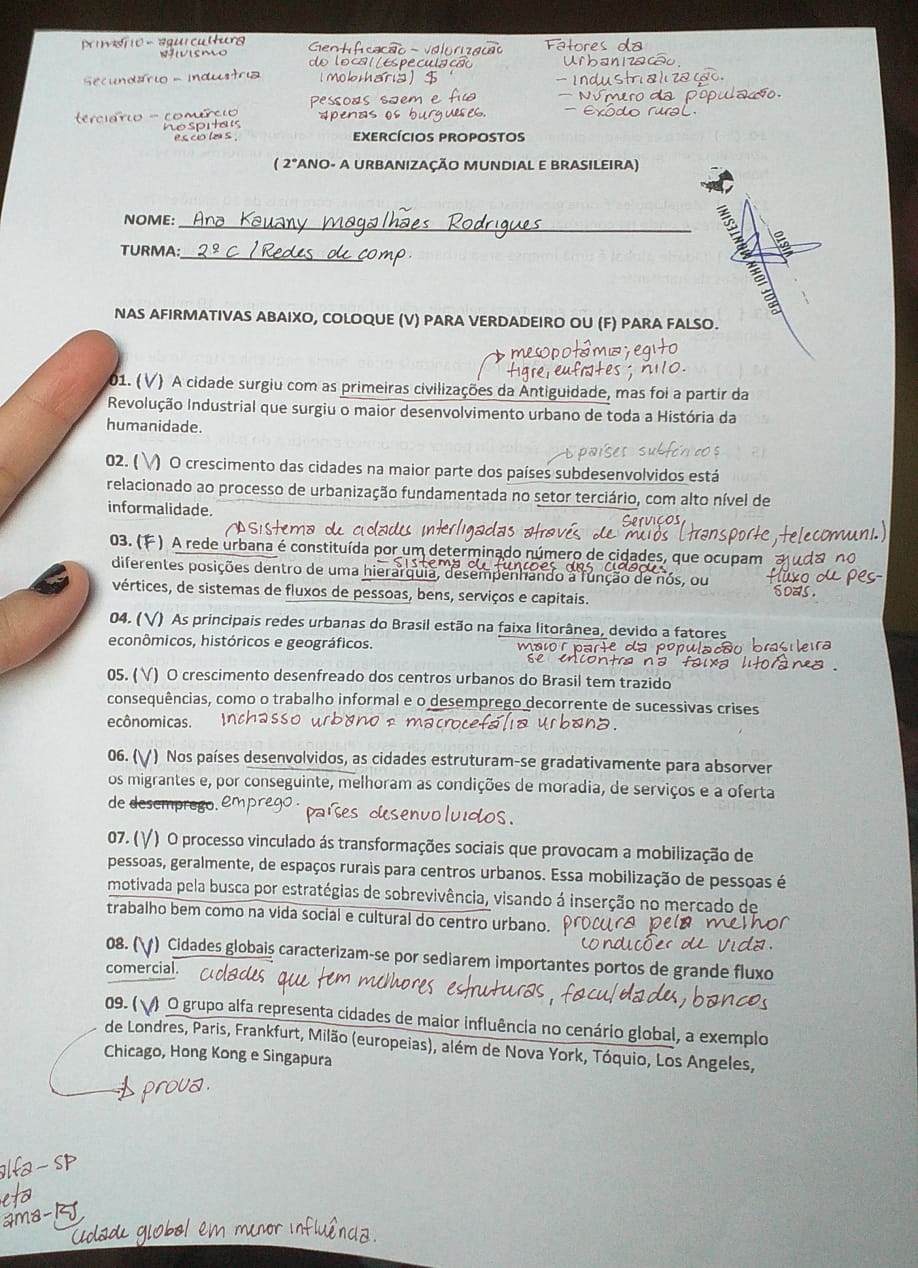 primário - aguicultura
ativismo
secundário - industria
terciário - comércio
hospitais
escolas.
Gentificacão - valorizacão
do local (especulacão
imobiliária) $
pessoas saem e fica
apenas os burgueses.
Fatores da
Urbanizacão.
- Industrialização.
- Número da populacão.
- Exôdo rural.
EXERCÍCIOS PROPOSTOS
( 2°ANO- A URBANIZAÇÃO MUNDIAL E BRASILEIRA)
NOME: Ana Kauany Magalhães Rodrigues
TURMA: 2º C / Redes de comp.
PROF JOHN MONTESINI
VISTO
NAS AFIRMATIVAS ABAIXO, COLOQUE (V) PARA VERDADEIRO OU (F) PARA FALSO.
mesopotâmia; egito
tigre, eufrates; nilo.
01. (V) A cidade surgiu com as primeiras civilizações da Antiguidade, mas foi a partir da
Revolução Industrial que surgiu o maior desenvolvimento urbano de toda a História da
humanidade.
países subfóricos
02. (V) O crescimento das cidades na maior parte dos países subdesenvolvidos está
relacionado ao processo de urbanização fundamentada no setor terciário, com alto nível de
informalidade.
serviços,
sistema de cidades interligadas através de meios (transporte, telecomuni.)
03. (F) A rede urbana é constituída por um determinado número de cidades, que ocupam
ajuda no
fluxo de pes-
soas.
- sistema de funções das cidades.
diferentes posições dentro de uma hierarquia, desempenhando a função de nós, ou
vértices, de sistemas de fluxos de pessoas, bens, serviços e capitais.
04. (V) As principais redes urbanas do Brasil estão na faixa litorânea, devido a fatores
econômicos, históricos e geográficos.
maior parte da populacão brasileira
se encontra na faixa litorânea.
05. (V) O crescimento desenfreado dos centros urbanos do Brasil tem trazido
consequências, como o trabalho informal e o desemprego decorrente de sucessivas crises
ecônomicas. Inchasso urbano = macrocefália urbana.
06. (V) Nos países desenvolvidos, as cidades estruturam-se gradativamente para absorver
os migrantes e, por conseguinte, melhoram as condições de moradia, de serviços e a oferta
de desemprego. emprego.
países desenvolvidos.
07. (V) O processo vinculado ás transformações sociais que provocam a mobilização de
pessoas, geralmente, de espaços rurais para centros urbanos. Essa mobilização de pessoas é
motivada pela busca por estratégias de sobrevivência, visando á inserção no mercado de
trabalho bem como na vida social e cultural do centro urbano. procura pela melhor
condicões de vida.
08. (V) Cidades globais caracterizam-se por sediarem importantes portos de grande fluxo
comercial. cidades que tem melhores estruturas, faculdades, bancos
09. (V) O grupo alfa representa cidades de maior influência no cenário global, a exemplo
de Londres, Paris, Frankfurt, Milão (europeias), além de Nova York, Tóquio, Los Angeles,
Chicago, Hong Kong e Singapura
prova.
alfa - SP
eta
ama - RJ
cidade global em menor influência.